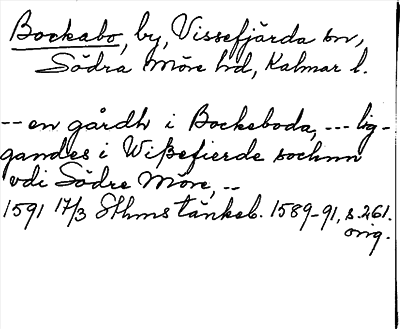 Bockabo, by, Vissefjärda sn,
Södra Möre hd, Kalmar l.
-- en gårdh i Bockeboda, --- lig-
gandes i Wißefierde sochnn
vdi Södre Möre, --
1591 17/3 Sthms tänkeb. 1589-91, s. 261.
orig.